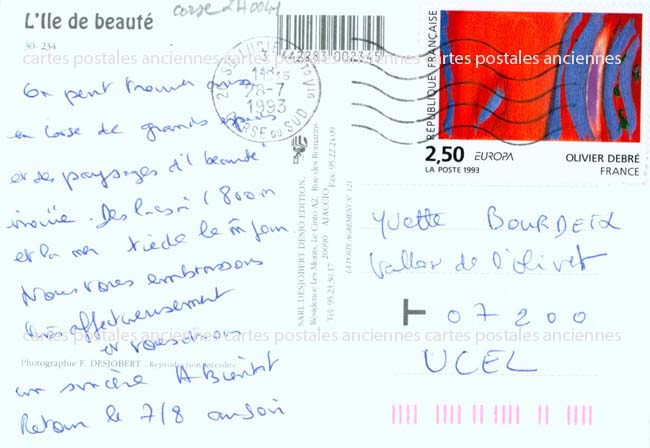 L'Ile de beauté
corse 2A004
30- 234
cartes postales anciennes cartes postales anciennes cartes postales anciennes
On peut trouver aussi
en Corse de grands espaces
et des paysages d'1 beauté
inouïe. Des lacs à 1800m
et la mer tiède le m̂ jour
Nous vous embrassons
très affectueusement
et vous disons
un sincère A Bientôt
Retour le 7/8 au soir
Photographie F. DESJOBERT - Reproduction interdite
442283 002345
2A STE LUCIE
14H
28-7
1993
CORSE DU SUD
SARL DESJOBERT DESJO EDITION,
Résidence Les Monts, Le Cinto A2, Rue des Romarins
Tél. 95.23.30.17 20090 - AJACCIO Fax 95.22.24.09
LA POSTE AGREMENT N° 121
RÉPUBLIQUE FRANÇAISE
2,50 EUROPA OLIVIER DEBRÉ
LA POSTE 1993 FRANCE
Yvette BOURDEIX
Vallon de l'Olivet
07200
UCEL
cartes postales anciennes cartes postales anciennes cartes postales anciennes